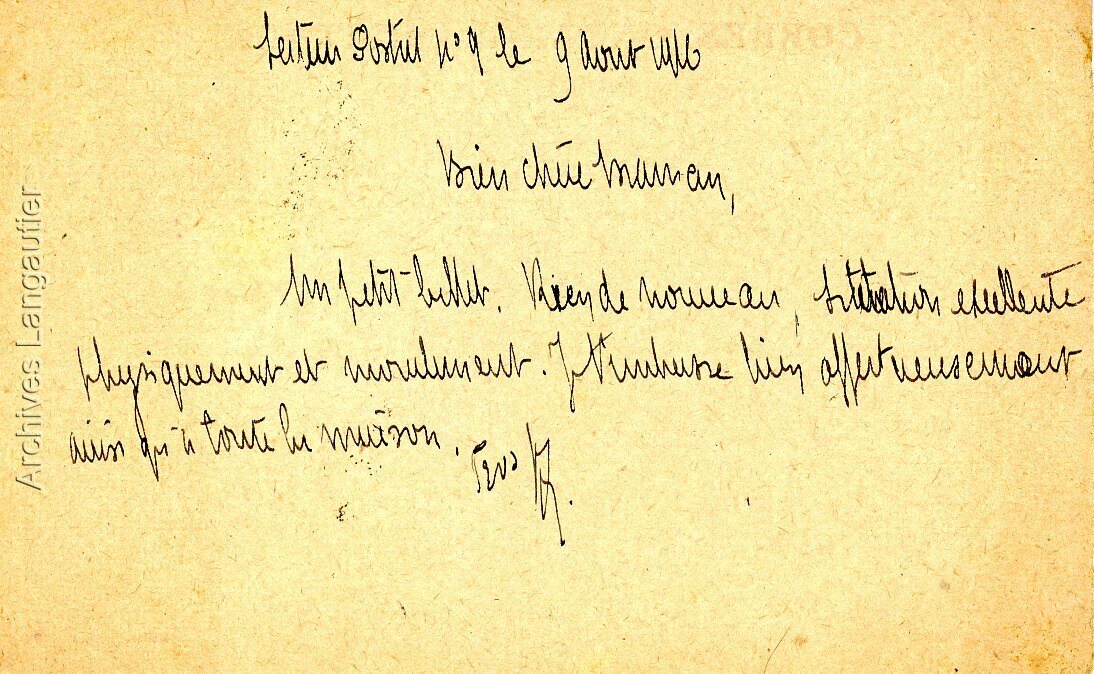 Secteur Postal n° 9 le 9 Aout 1916
Bien chère Maman,
Un petit billet. Rien de nouveau, Situation excellente
physiquement et moralement. Je t'embrasse bien affectueusement
ainsi qu'à toute la maison.
Archives Langautier